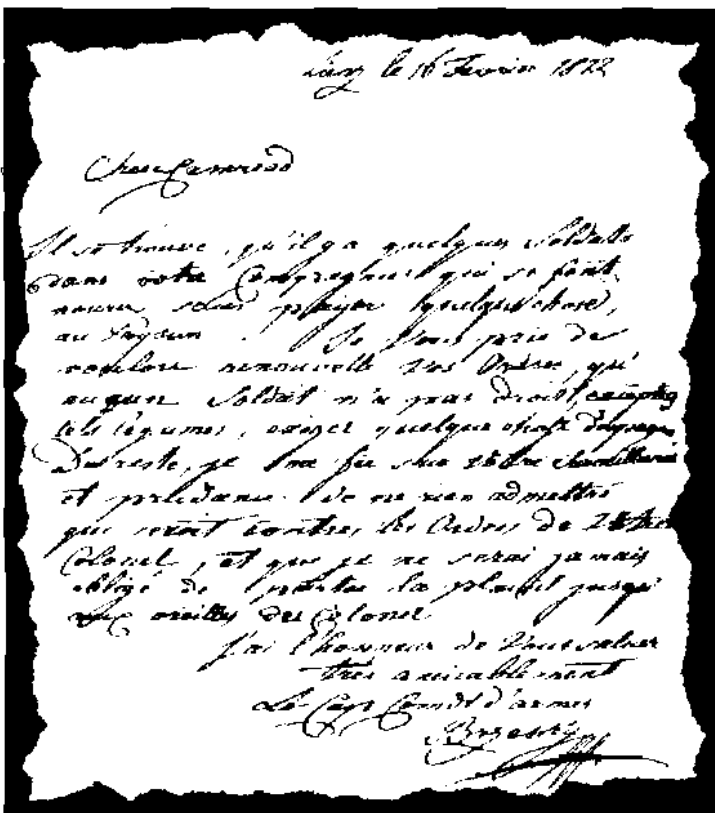 le 16 Fevrier 1822
Cher Camarad
Il se trouve, qu'il y a quelques Soldatts
dans votre Compagnie qui se font
sans payer quelque chose,
au . Je Vous prie de
vouloir renouvelle Vos Ordres, qu'
auqun Soldat n'a pas droit, excepté
les légumes, exiger quelque chose
Du reste, je me fie sur Votre
et prudance de ne rien admettre
qui serait contre les Ordres de
Colonel, et que je ne serai jamais
obligé de porter la plaint jusqu'
aux oreilles du Colonel
J'ai l'honneur de Vous saluer
très amicablement
Le Cap Comdt d'armes